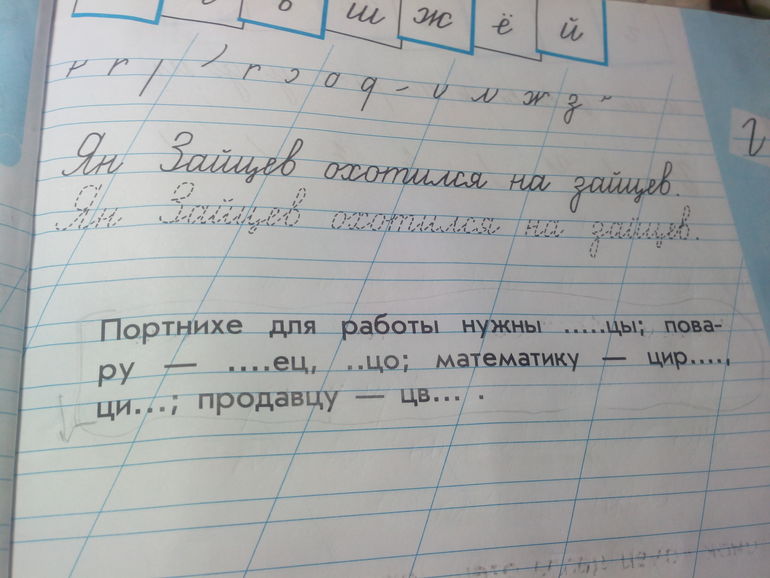 ш ж ё й
Ян Зайцев охотился на зайцев.
Ян Зайцев охотился на зайцев.
Портнихе для работы нужны .....цы; пова-
ру — ....ец, ..цо; математику — цир....,
ци...; продавцу — цв... .